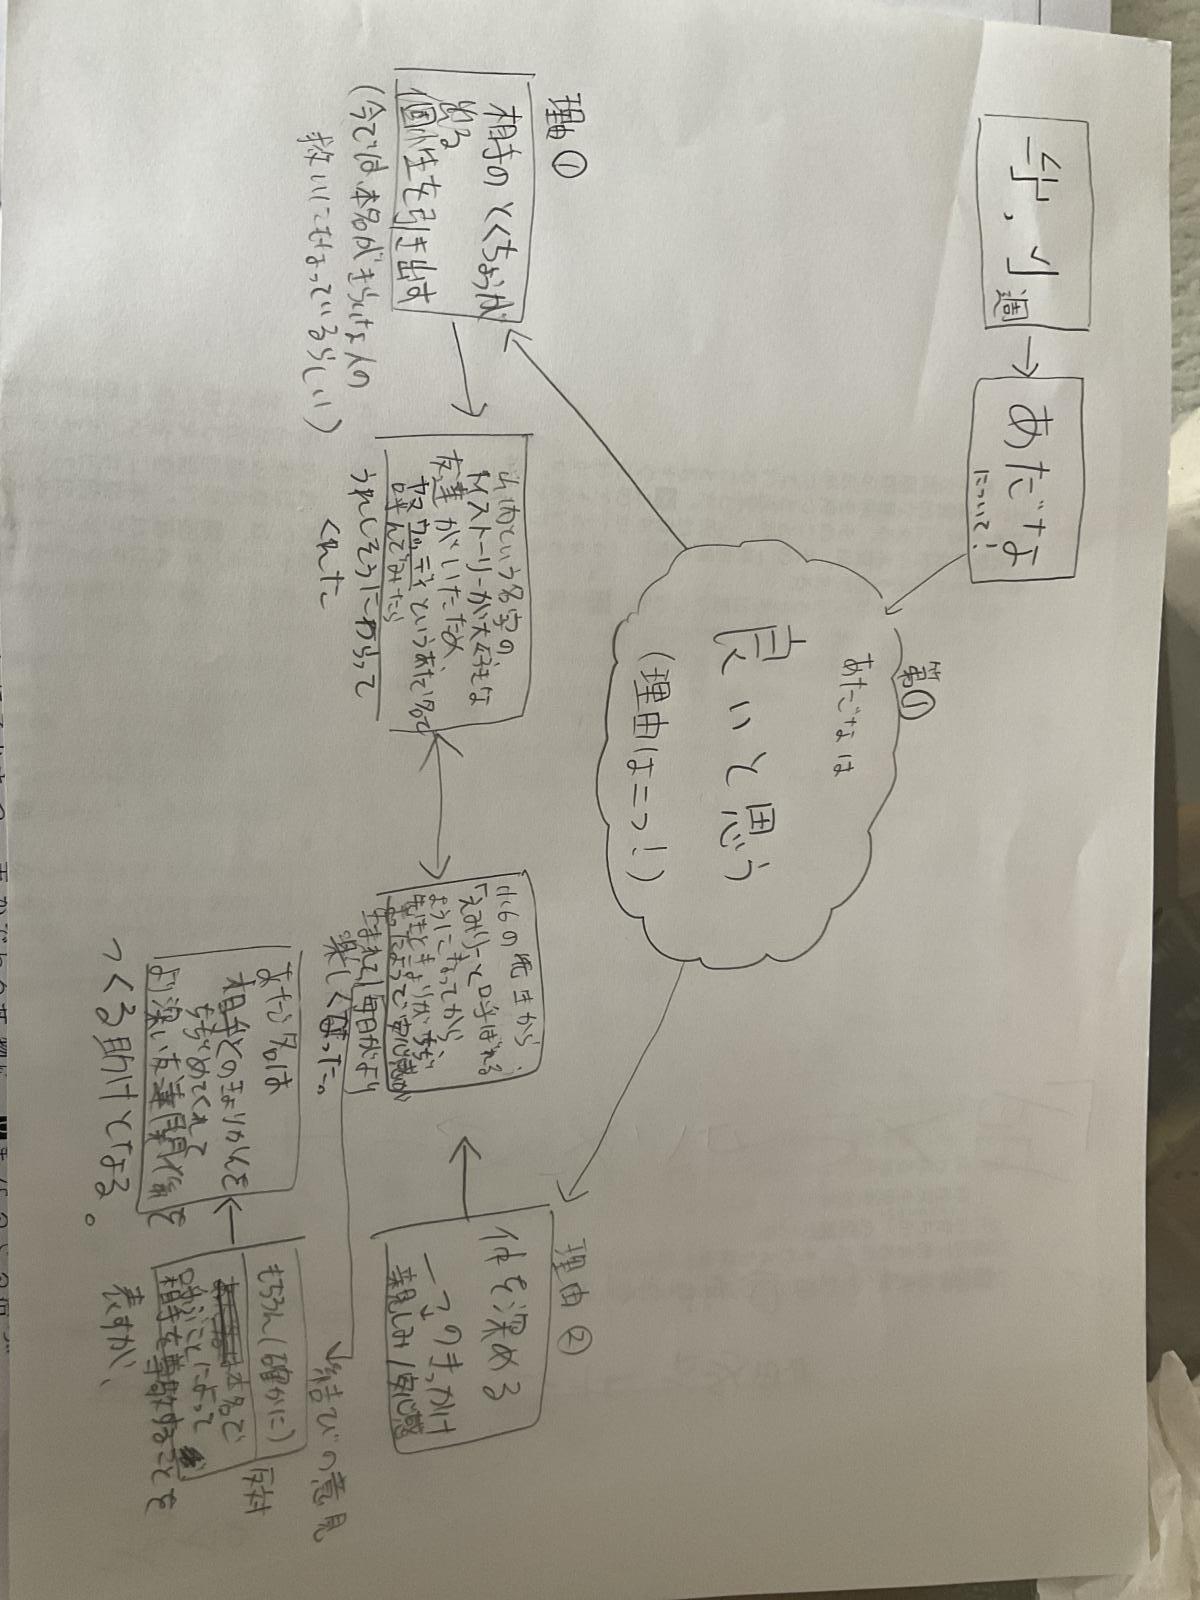 字、1週
→
あだな
について!
第①
あだなは
良いと思う
(理由は二つ!)
理由①
相手のとくちょうが
出る
個性を引き出す
(今では、本名がきらいな人の
救いにもなっているらしい)
という名字の
ストーリーが大好きな
友達がいたため、
ヤマウッディというあだ名で
呼んでみたら
うれしそうにわらって
くれた
理由②
仲を深める
一つのきっかけ
親しみ/安心感
小6の先生から、
「えみりー」と呼ばれる
ようになってから
先生ときょりが ちぢ
まったようで安心感が
生まれて、毎日がより
楽しくなった。
結びの意見
もちろん(確かに)
反対
本名で
呼ぶことによって
相手を尊敬することを
表すが、
あだ名は
相手とのきょりかんを
ちぢめてくれて
より深い友達関係を
つくる助けとなる。